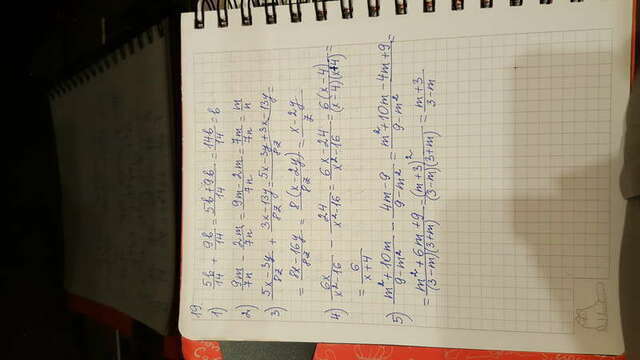 19
1) 5b/14 + 9b/14 = 5b+9b/14 = 14b/14 = b
2) 9m/7n - 2m/7n = 9m-2m/7n = 7m/7n = m/n
3) 5x-3y/8z + 3x-13y/8z = 5x-3y+3x-13y/8z =
= 8x-16y/8z = 8(x-2y)/8z = x-2y/z
4) 6x/x²-16 - 24/x²-16 = 6x-24/x²-16 = 6(x-4)/(x-4)(x+4) =
= 6/x+4
5) m²+10m/9-m² - 4m-9/9-m² = m²+10m-4m+9/9-m² =
= m²+6m+9/(3-m)(3+m) = (m+3)²/(3-m)(3+m) = m+3/3-m